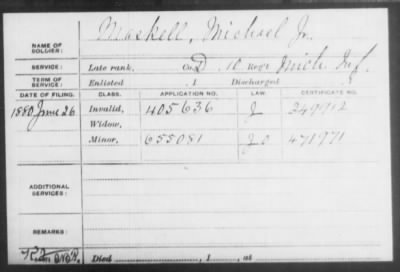 NAME OF SOLDIER: Maskell, Michael Jr.
SERVICE: Late rank, Co. D, 10 Reg't Mich Inf.
TERM OF SERVICE: Enlisted , 1 Discharged , 1
DATE OF FILING. CLASS. APPLICATION NO. LAW. CERTIFICATE NO.
1880 June 26 Invalid, 405636 J 249912
Widow,
Minor, 655081 J O 471971
ADDITIONAL SERVICES:
REMARKS:
Died , 1 , at